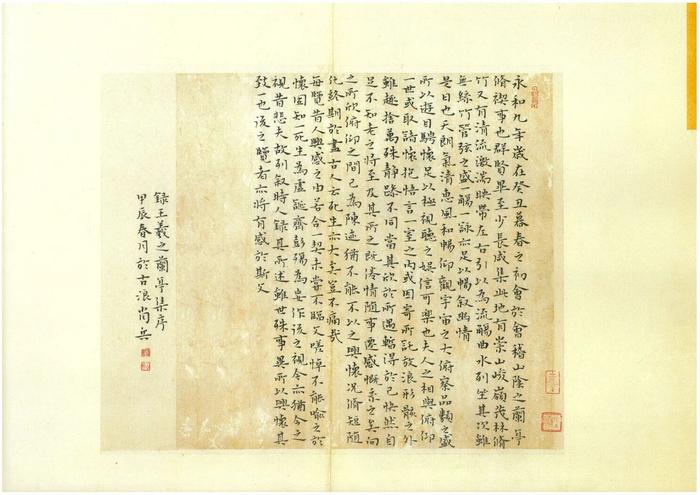 永和九年歲在癸丑暮春之初會於會稽山陰之蘭亭
脩禊事也群賢畢至少長咸集此地有崇山峻嶺茂林脩
竹又有清流激湍映帶左右引以為流觴曲水列坐其次雖
無絲竹管弦之盛一觴一詠亦足以暢敘幽情
是日也天朗氣清惠風和暢仰觀宇宙之大俯察品類之盛
所以遊目騁懷足以極視聽之娛信可樂也夫人之相與俯仰
一世或取諸懷抱悟言一室之內或因寄所託放浪形骸之外
雖趣捨萬殊靜躁不同當其欣於所遇暫得於己快然自
足不知老之將至及其所之既倦情隨事遷感慨系之矣向
之所欣俯仰之間已為陳迹猶不能不以之興懷況脩短隨
化終期於盡古人云死生亦大矣豈不痛哉
每覽昔人興感之由若合一契未嘗不臨文嗟悼不能喻之於
懷固知一死生為虛誕齊彭殤為妄作後之視今亦猶今之
視昔悲夫故列敘時人錄其所述雖世殊事異所以興懷其
致一也後之覽者亦將有感於斯文
錄王羲之蘭亭集序
甲辰春月於古浪尚兵